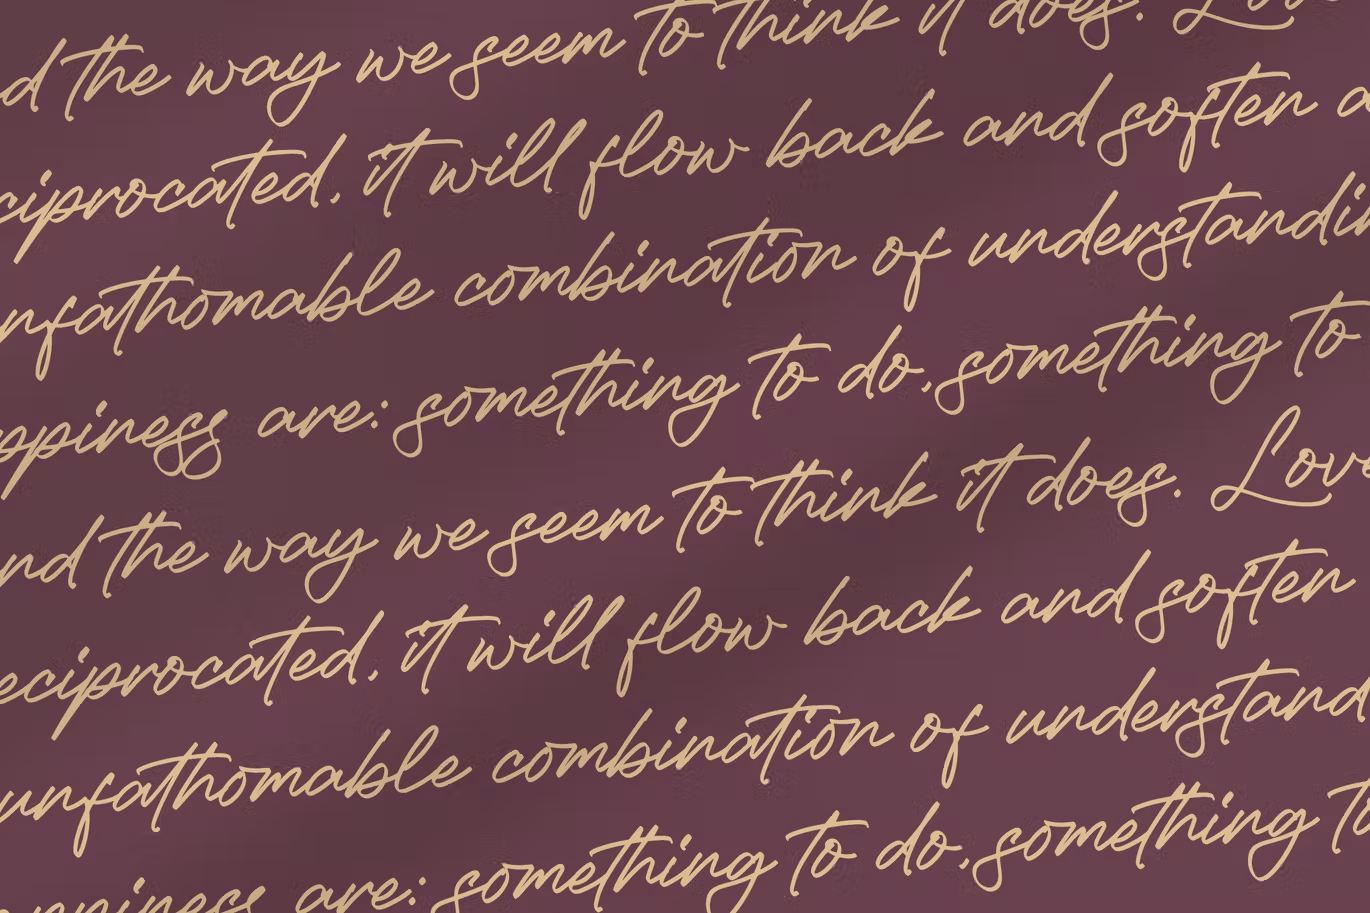 d the way we seem to think it does. Lov
ciprocated, it will flow back and soften a
nfathomable combination of understandin
ppiness are: something to do, something to
nd the way we seem to think it does. Love
eciprocated, it will flow back and soften
unfathomable combination of understand
ppiness are: something to do, something to